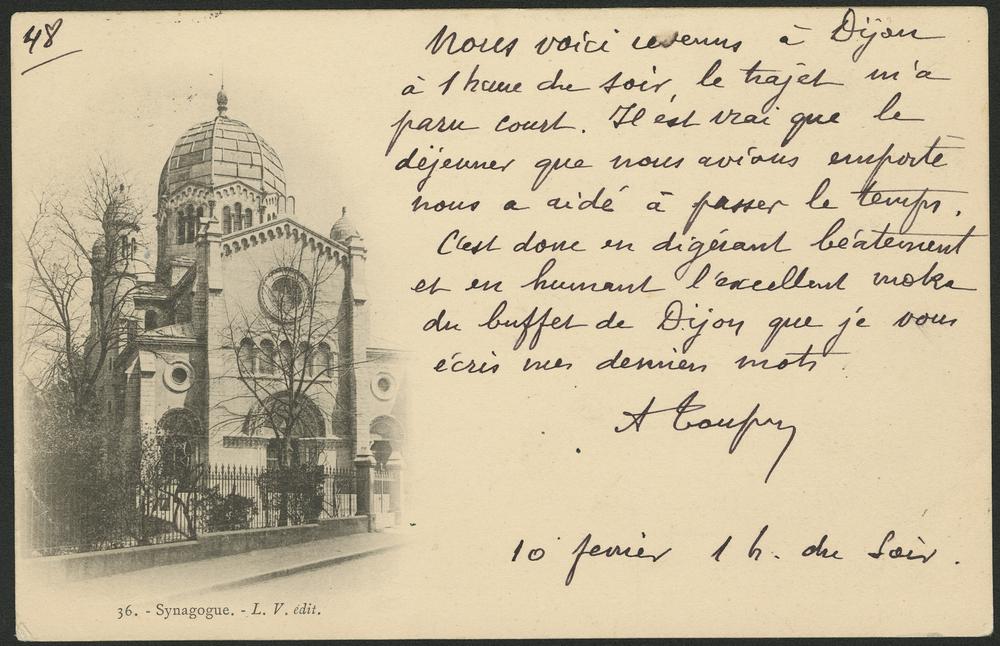 48
Nous voici revenus à Dijon
à 1 heure du soir, le trajet m'a
paru court. Il est vrai que le
déjeuner que nous avions emporté
nous a aidé à passer le temps.
C'est donc en digérant béatement
et en humant l'excellent moka
du buffet de Dijon que je vous
écris mes derniers mots
A
10 fevrier 1 h. du Soir.
36. - Synagogue. - L. V. édit.